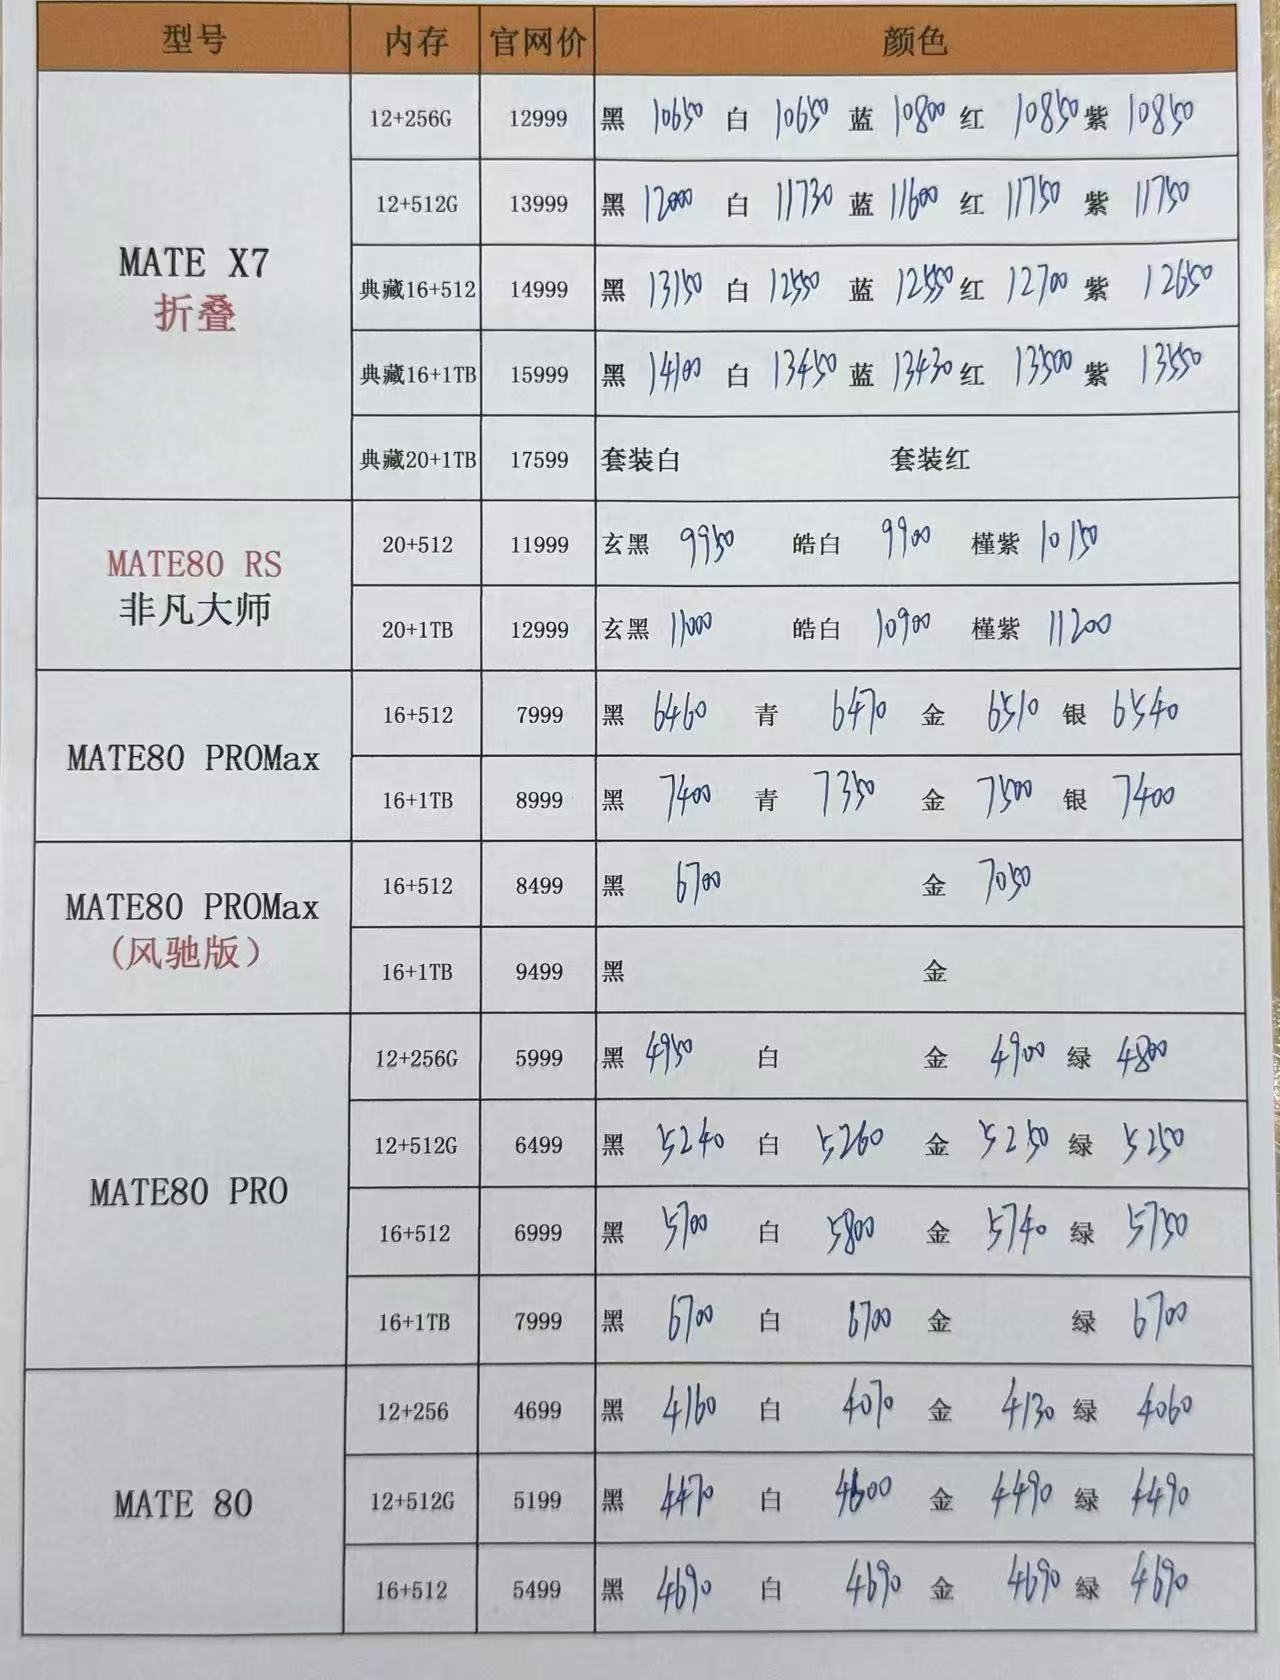 型号 内存 官网价 颜色
MATE X7
折叠
12+256G 12999 黑 10650 白 10650 蓝 10800 红 10850 紫 10850
12+512G 13999 黑 12000 白 11730 蓝 11600 红 11750 紫 11750
典藏16+512 14999 黑 13150 白 12550 蓝 12550 红 12700 紫 12650
典藏16+1TB 15999 黑 14100 白 13450 蓝 13430 红 13500 紫 13550
典藏20+1TB 17599 套装白 套装红
MATE80 RS
非凡大师
20+512 11999 玄黑 9950 皓白 9900 槿紫 10150
20+1TB 12999 玄黑 11000 皓白 10900 槿紫 11200
MATE80 PROMax
16+512 7999 黑 6460 青 6470 金 6510 银 6540
16+1TB 8999 黑 7400 青 7350 金 7500 银 7400
MATE80 PROMax
(风驰版)
16+512 8499 黑 6700 金 7050
16+1TB 9499 黑 金
MATE80 PRO
12+256G 5999 黑 4950 白 金 4900 绿 4800
12+512G 6499 黑 5240 白 5260 金 5250 绿 5250
16+512 6999 黑 5700 白 5800 金 5740 绿 5750
16+1TB 7999 黑 6700 白 6700 金 绿 6700
MATE 80
12+256 4699 黑 4160 白 4070 金 4130 绿 4060
12+512G 5199 黑 4470 白 金 4490 绿 4490
16+512 5499 黑 4690 白 4690 金 4690 绿 4690